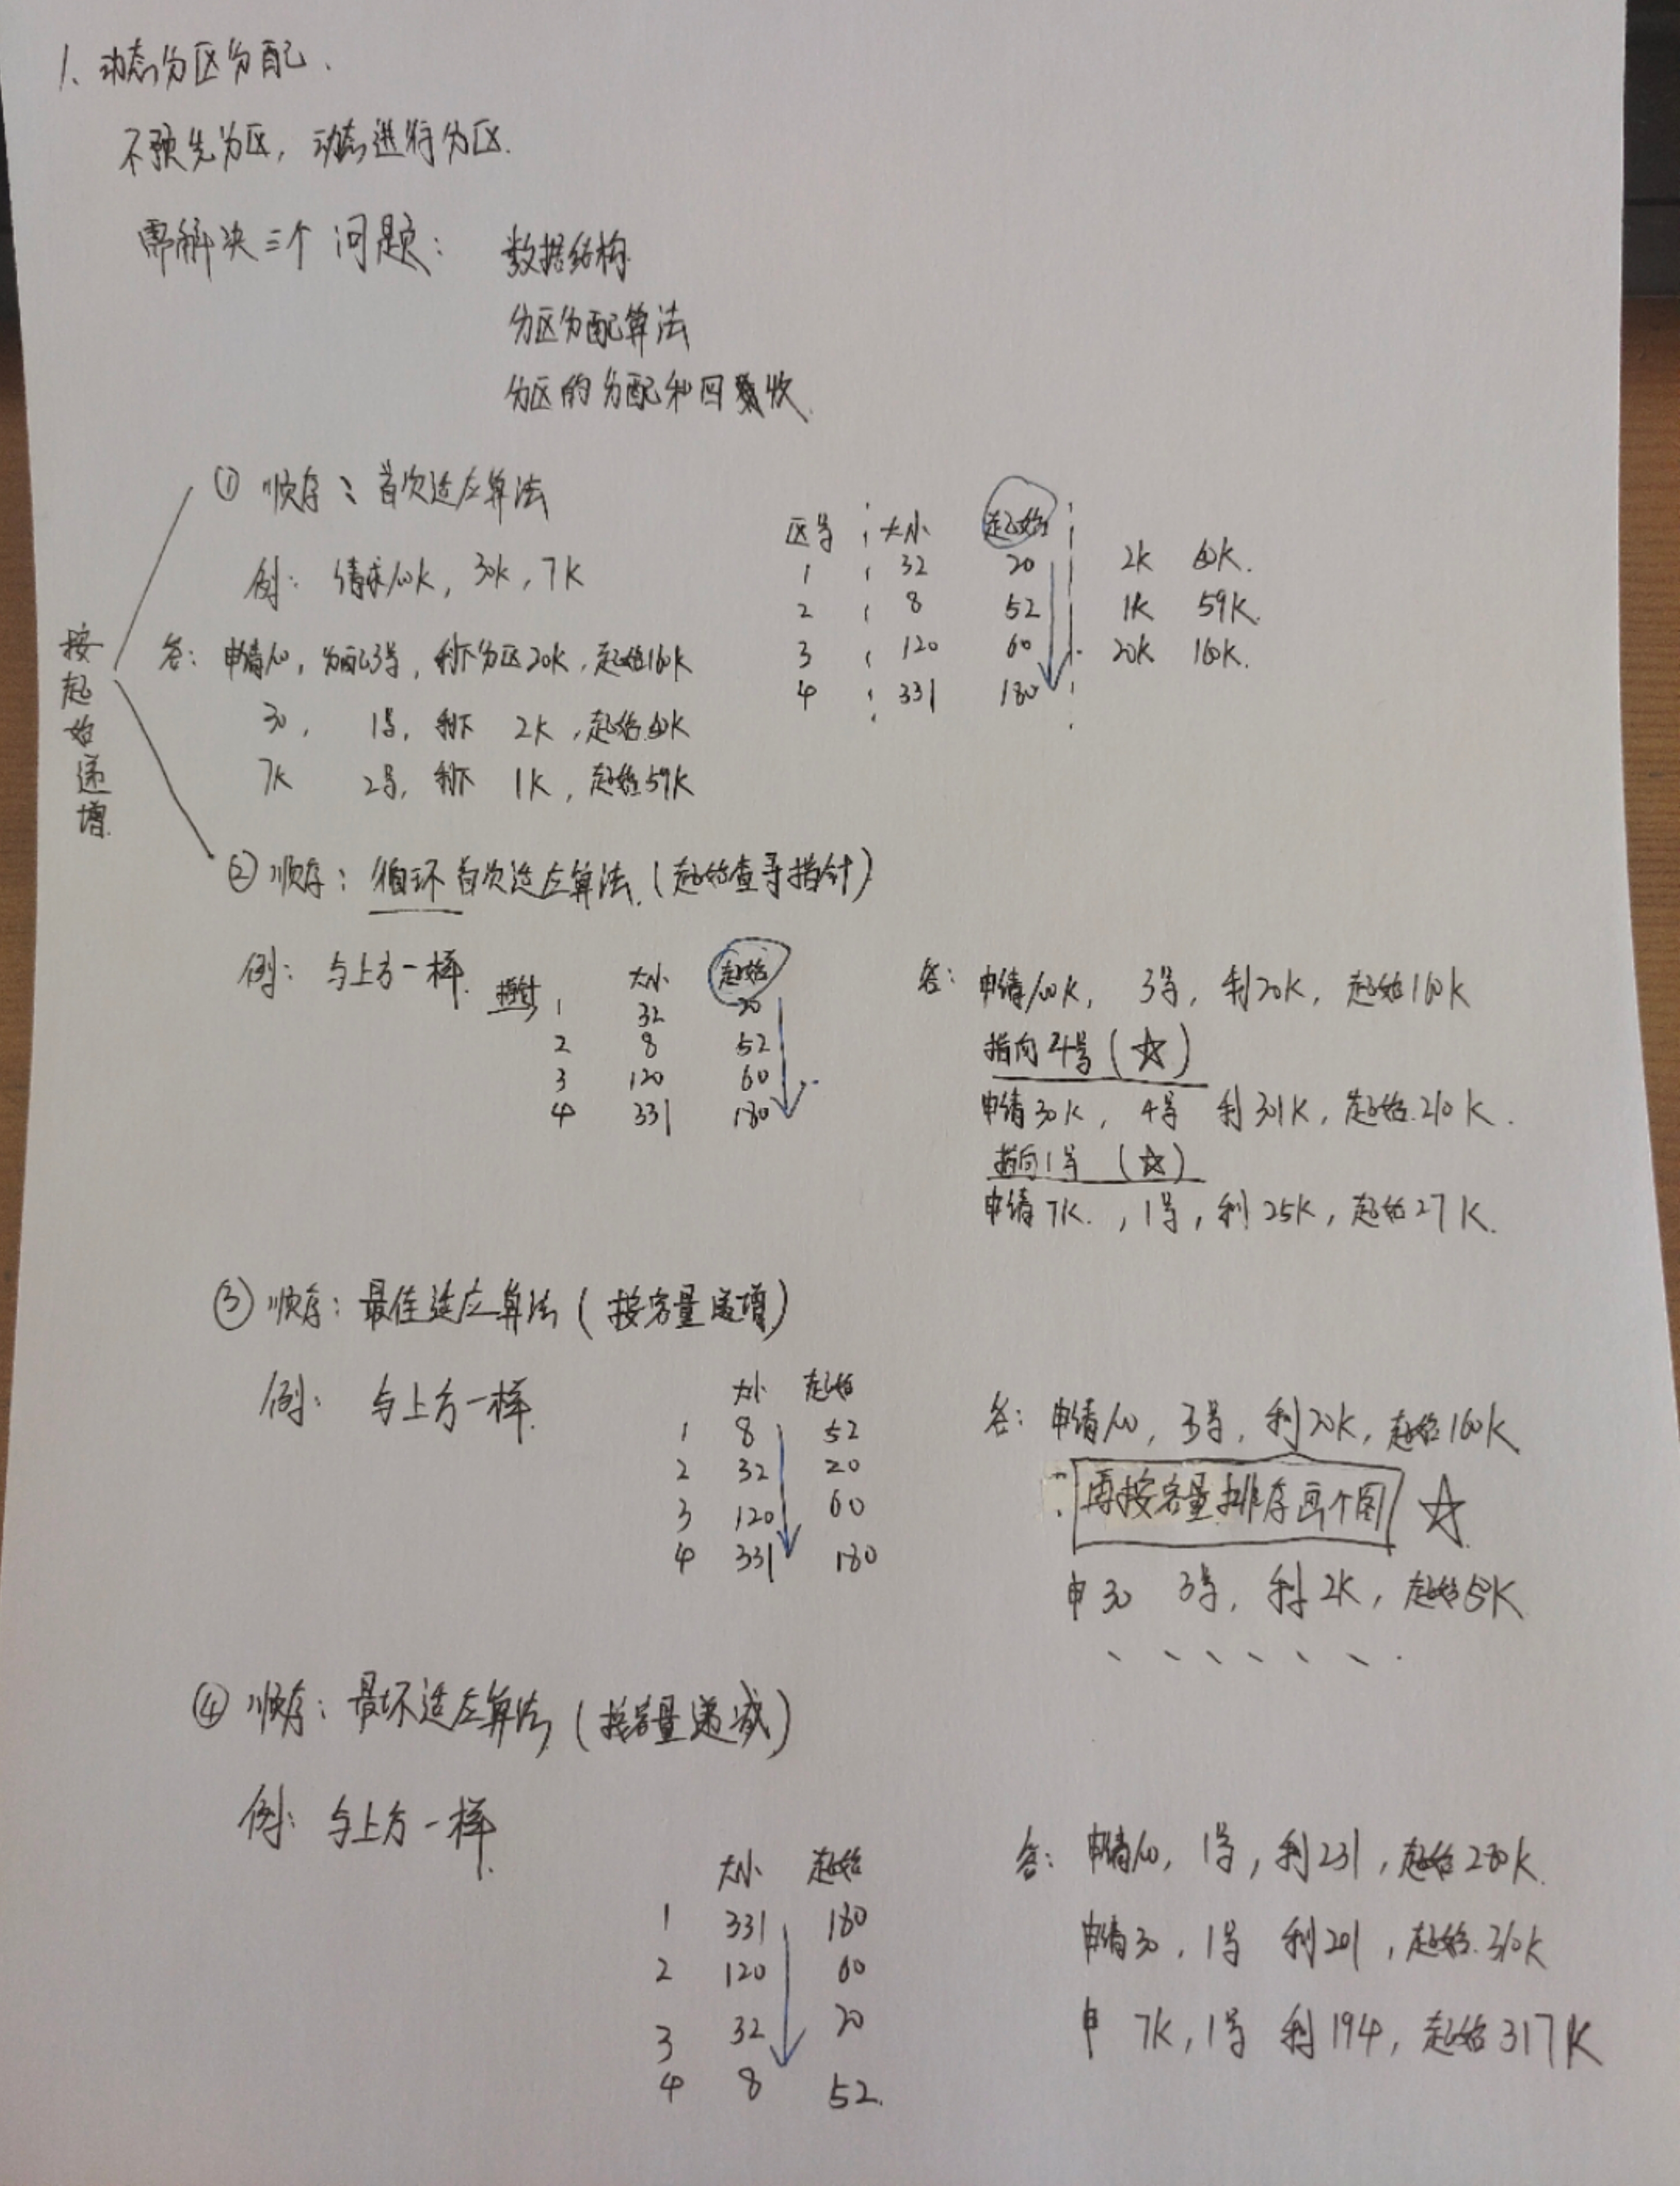 1、动态分区分配.
不预先分区,动态进行分区.
需解决三个问题: 数据结构.
分区分配算法
分区的分配和回收.
按起始递增.
① 顺序: 首次适应算法
例: 请求100k, 30k, 7k
区号 大小 起始
1 32 20 2k
2 8 52 1k 59k.
3 120 60 20k 160k.
4 331 180
答: 申请100, 分配3号, 剩下分区20k, 起始160k
30, 1号, 剩下 2k, 起始
7k 2号, 剩下 1k, 起始59k
② 顺序: 循环首次适应算法.(起始查寻指针)
例: 与上方一样.
指针 大小 起始
1 32 20
2 8 52
3 120 60
4 331 180
答: 申请100k, 3号, 剩20k, 起始160k
指向4号(☆)
申请30k, 4号 剩301k, 起始.210k.
指向1号 (☆)
申请7k., 1号, 剩25k, 起始27k.
③ 顺序: 最佳适应算法(按容量递增)
例: 与上方一样.
大小 起始
1 8 52
2 32 20
3 120 60
4 331 180
答: 申请100, 3号, 剩20k, 起始160k
再按容量排序画个图 ☆
申30 3号, 剩2k, 起始
......
④ 顺序: 最坏适应算法(按容量递减)
例: 与上方一样.
大小 起始
1 331 180
2 120 60
3 32 20
4 8 52.
答: 申请100, 1号, 剩231, 起始280k.
申请30, 1号 剩201, 起始.310k
申 7k, 1号 剩194, 起始317k